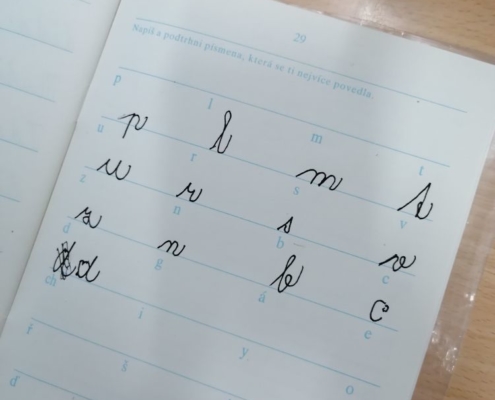 29
Napiš a podtrhni písmena, která se ti nejvíce povedla.
p l m t
p l m t
u r s v
u r s v
z n b c
z n b c
d g á e
d
ch i y o
ř š
ď